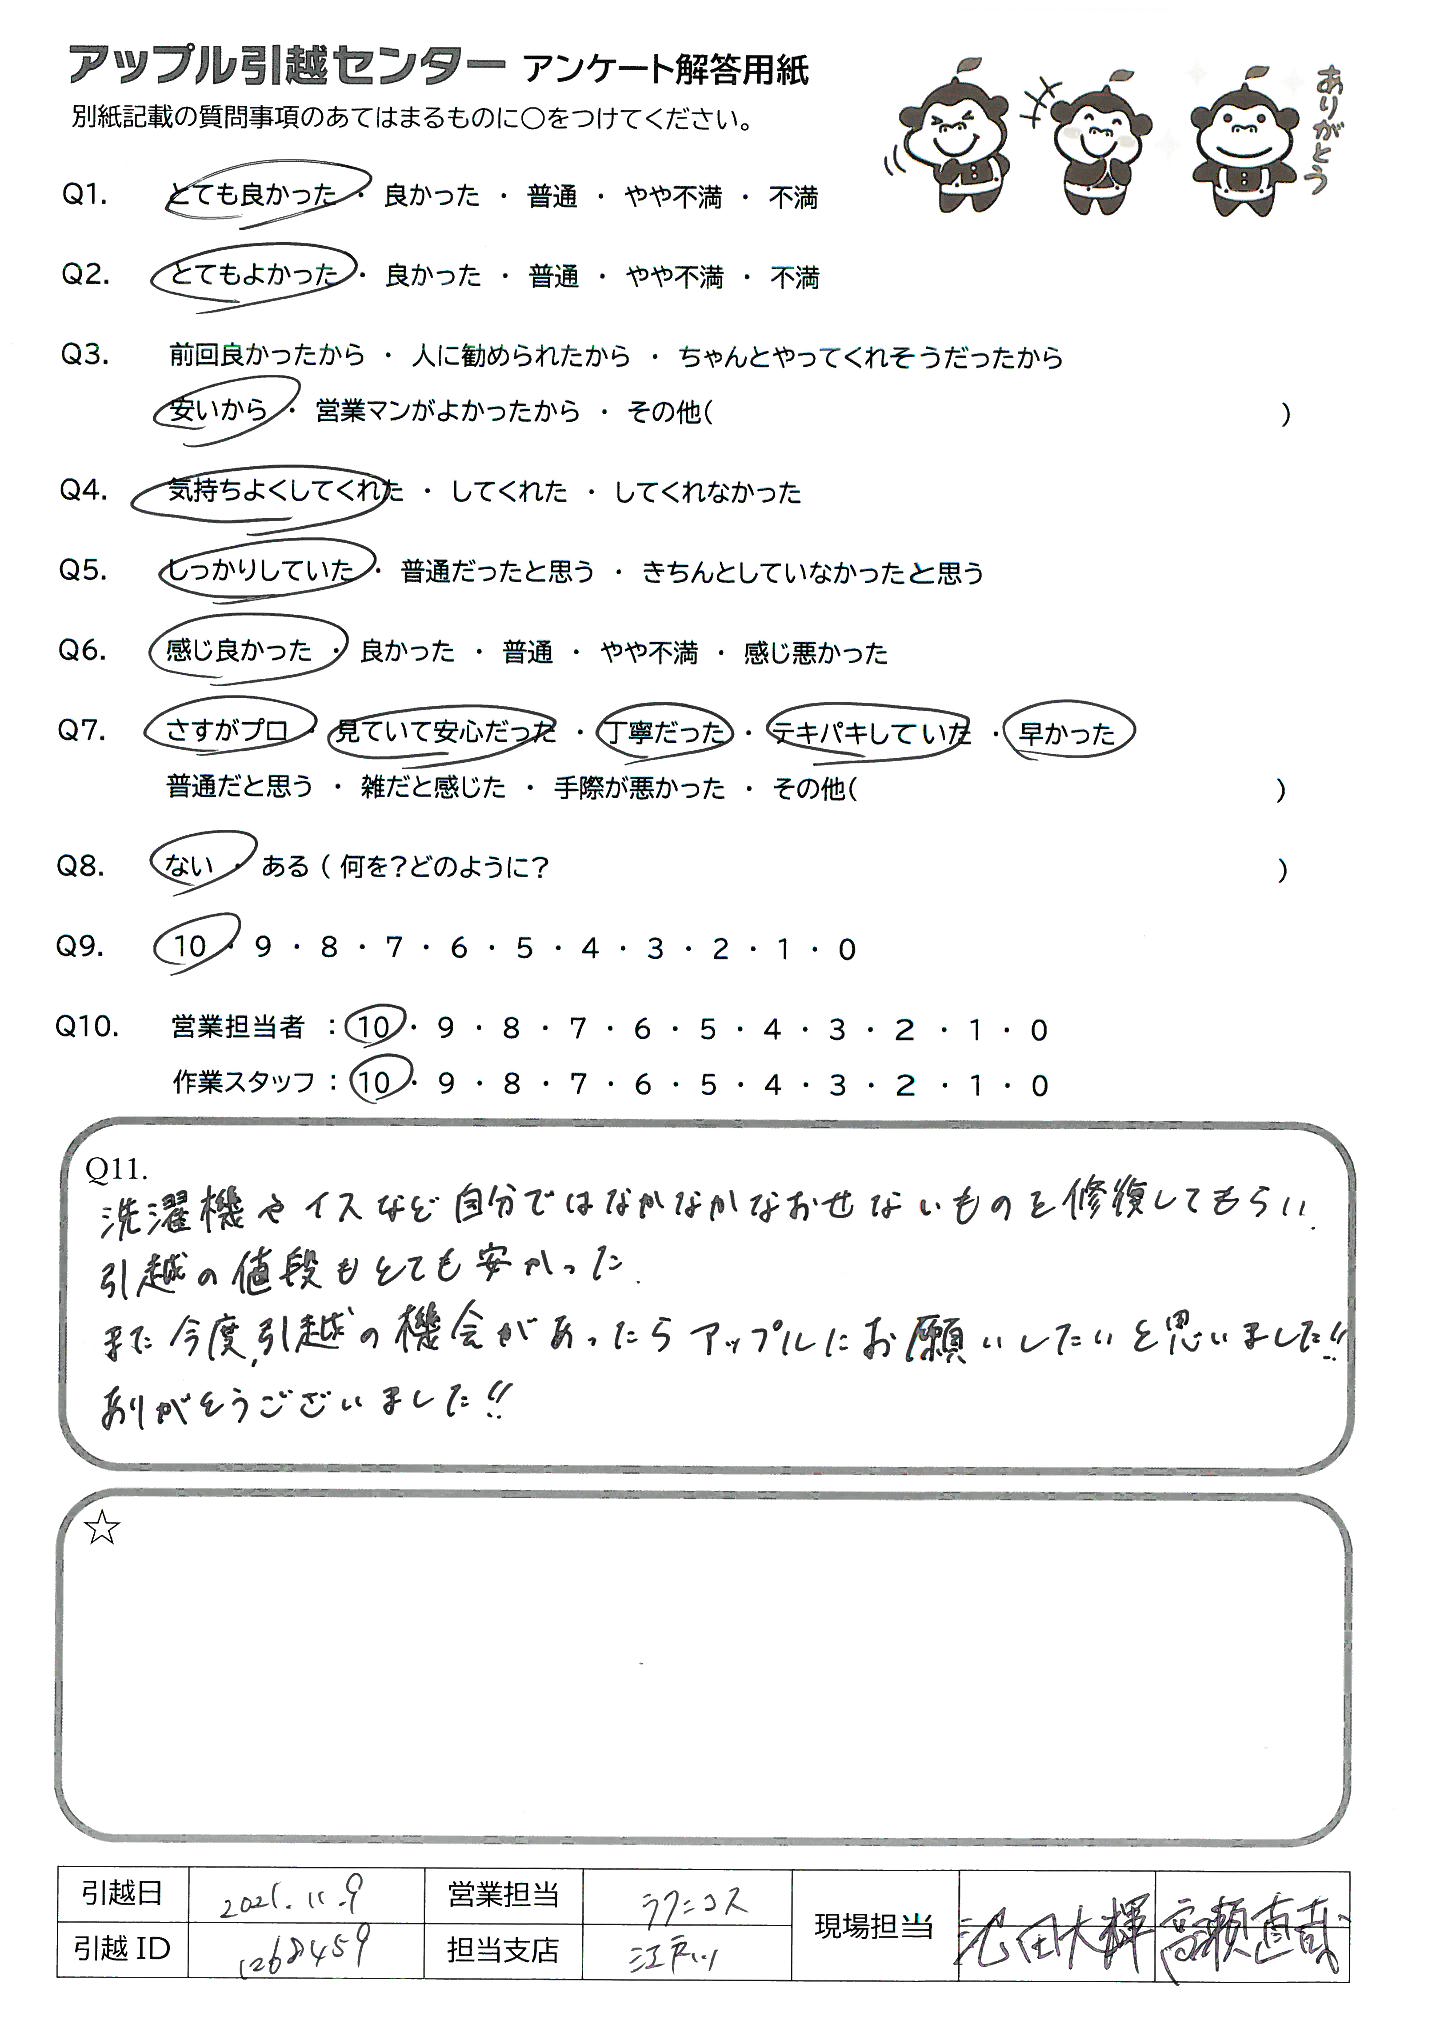 アップル引越センター アンケート解答用紙
ありがとう
別紙記載の質問事項のあてはまるものに○をつけてください。
Q1. とても良かった ・ 良かった ・ 普通 ・ やや不満 ・ 不満
Q2. とてもよかった ・ 良かった ・ 普通 ・ やや不満 ・ 不満
Q3. 前回良かったから ・ 人に勧められたから ・ ちゃんとやってくれそうだったから
安いから ・ 営業マンがよかったから ・ その他( )
Q4. 気持ちよくしてくれた ・ してくれた ・ してくれなかった
Q5. しっかりしていた ・ 普通だったと思う ・ きちんとしていなかったと思う
Q6. 感じ良かった ・ 良かった ・ 普通 ・ やや不満 ・ 感じ悪かった
Q7. さすがプロ ・ 見ていて安心だった ・ 丁寧だった ・ テキパキしていた ・ 早かった
普通だと思う ・ 雑だと感じた ・ 手際が悪かった ・ その他( )
Q8. ない ・ ある ( 何を?どのように? )
Q9. 10 ・ 9 ・ 8 ・ 7 ・ 6 ・ 5 ・ 4 ・ 3 ・ 2 ・ 1 ・ 0
Q10. 営業担当者 : 10 ・ 9 ・ 8 ・ 7 ・ 6 ・ 5 ・ 4 ・ 3 ・ 2 ・ 1 ・ 0
作業スタッフ : 10 ・ 9 ・ 8 ・ 7 ・ 6 ・ 5 ・ 4 ・ 3 ・ 2 ・ 1 ・ 0
Q11.
洗濯機やイスなど自分ではなかなかなおせないものを修復してもらい、
引越の値段もとても安かった。
また今度、引越の機会があったらアップルにお願いしたいと思いました!!
ありがとうございました!!
☆
引越日 2025.11.9 営業担当 ラクニコス 現場担当 池田大輝 高瀬直哉
引越ID 1268459 担当支店 江戸川